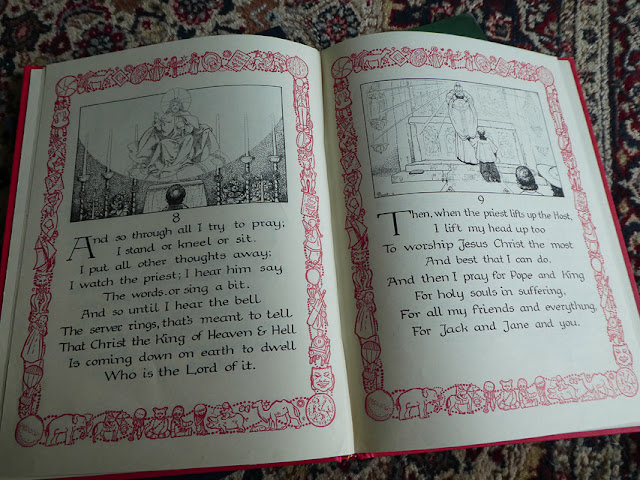 8
And so through all I try to pray;
I stand or kneel or sit.
I put all other thoughts away;
I watch the priest; I hear him say
The words, or sing a bit.
And so until I hear the bell
The server rings, that's meant to tell
That Christ the King of Heaven & Hell
Is coming down on earth to dwell
Who is the Lord of it.
9
Then, when the priest lifts up the Host,
I lift my head up too
To worship Jesus Christ the most
And best that I can do.
And then I pray for Pope and King
For holy souls in suffering,
For all my friends and everything,
For Jack and Jane and you.